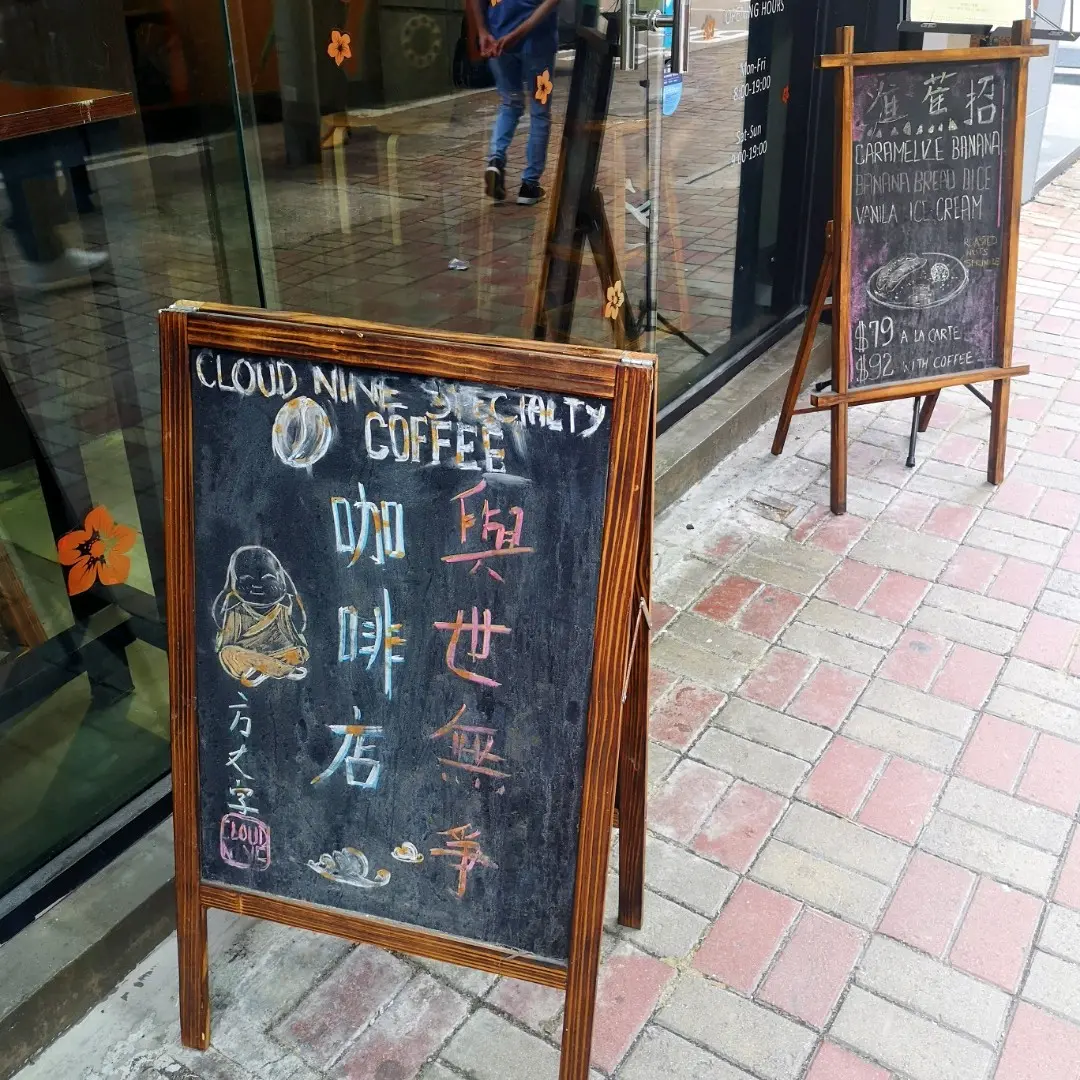 CLOUD NINE SPECIALTY
COFFEE
與世無爭
咖啡店
方丈字
CLOUD
NINE
OPENING HOURS
Mon-Fri
8:00-19:00
Sat-Sun
9:00-19:00
蕉招
CARAMELIZE BANANA
BANANA BREAD DICE
VANILA ICE CREAM
ROASTED
NUTS
$79 A LA CARTE
$92 WITH COFFEE